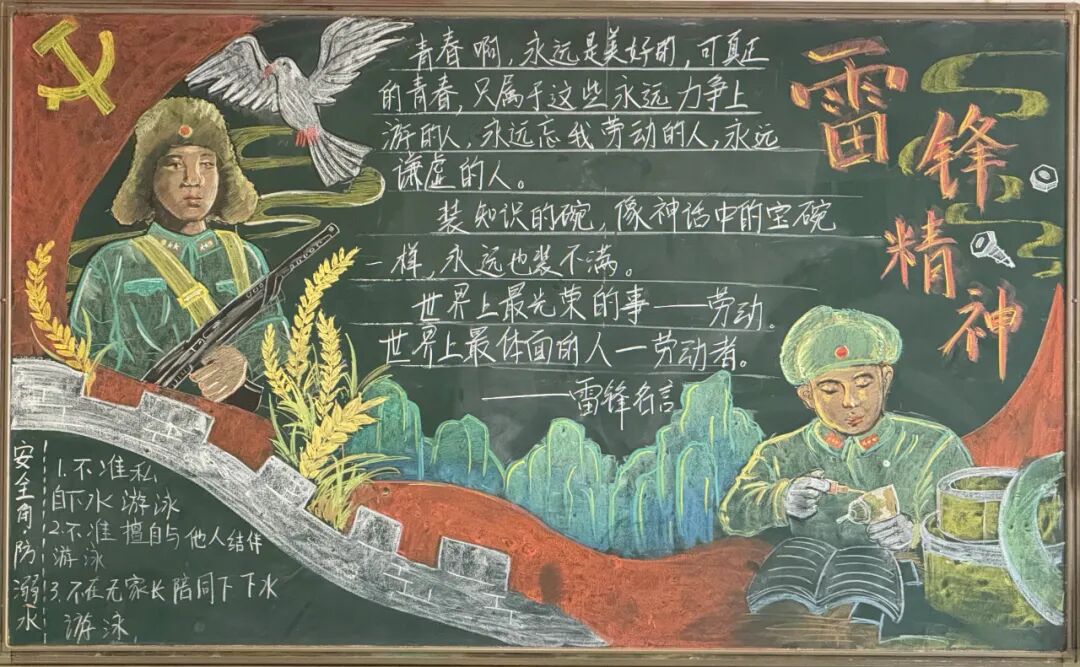 青春啊,永远是美好的,可真正
的青春,只属于这些永远力争上
游的人,永远忘我劳动的人,永远
谦虚的人。
装知识的碗,像神话中的宝碗
一样,永远也装不满。
世界上最光荣的事——劳动。
世界上最体面的人—劳动者。
——雷锋名言
雷
锋
精
神
安全角·防溺水
1.不准私
自下水游泳
2.不准擅自与他人结伴
游泳
3.不在无家长陪同下下水
游泳.